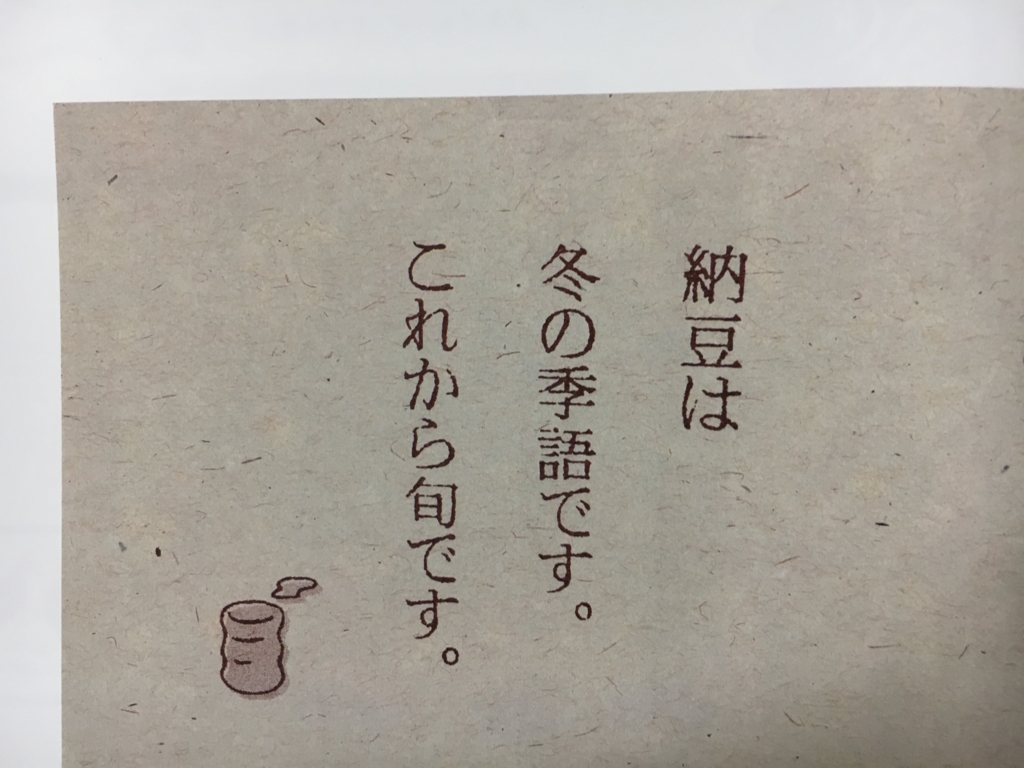 納豆は
冬の季語です。
これから旬です。